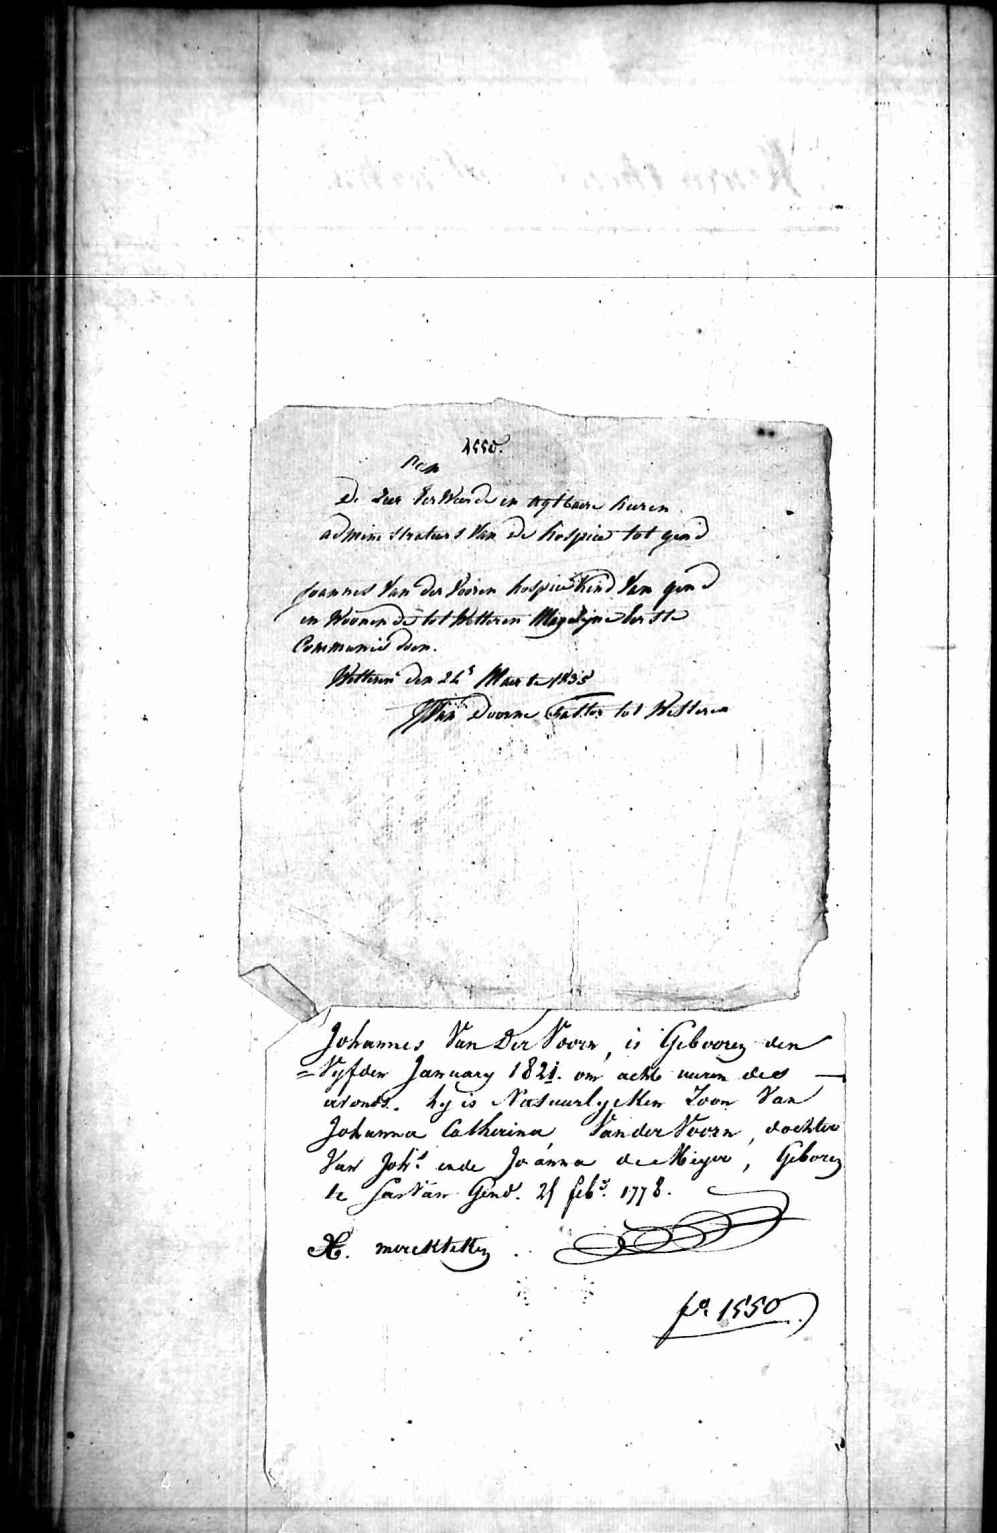 1550.
Aan
De Zeer Eer Weerde en agtbaere heeren
administrateurs Van de hospice tot gend
Joannes Van der Vooren hospice Kind Van gend
en Woonende tot Wetteren Mag zijne Eerste
Communie doen.
Wetteren den 24s Maerte 1835
J Van Doorne Paster tot Wetteren
Johannes Van Der Voorn, is Gebooren den
Vyfden January 1821. om acht uuren des
avonds. hy is Natuurlycken Zoon Van
Johanna Catherina Van der Voorn, dochter
Van Johs. ende Joanna de Meyer, Geboren
te Sas Van Gend. 25 febr. 1778.
X. merckteken
fo. 1550